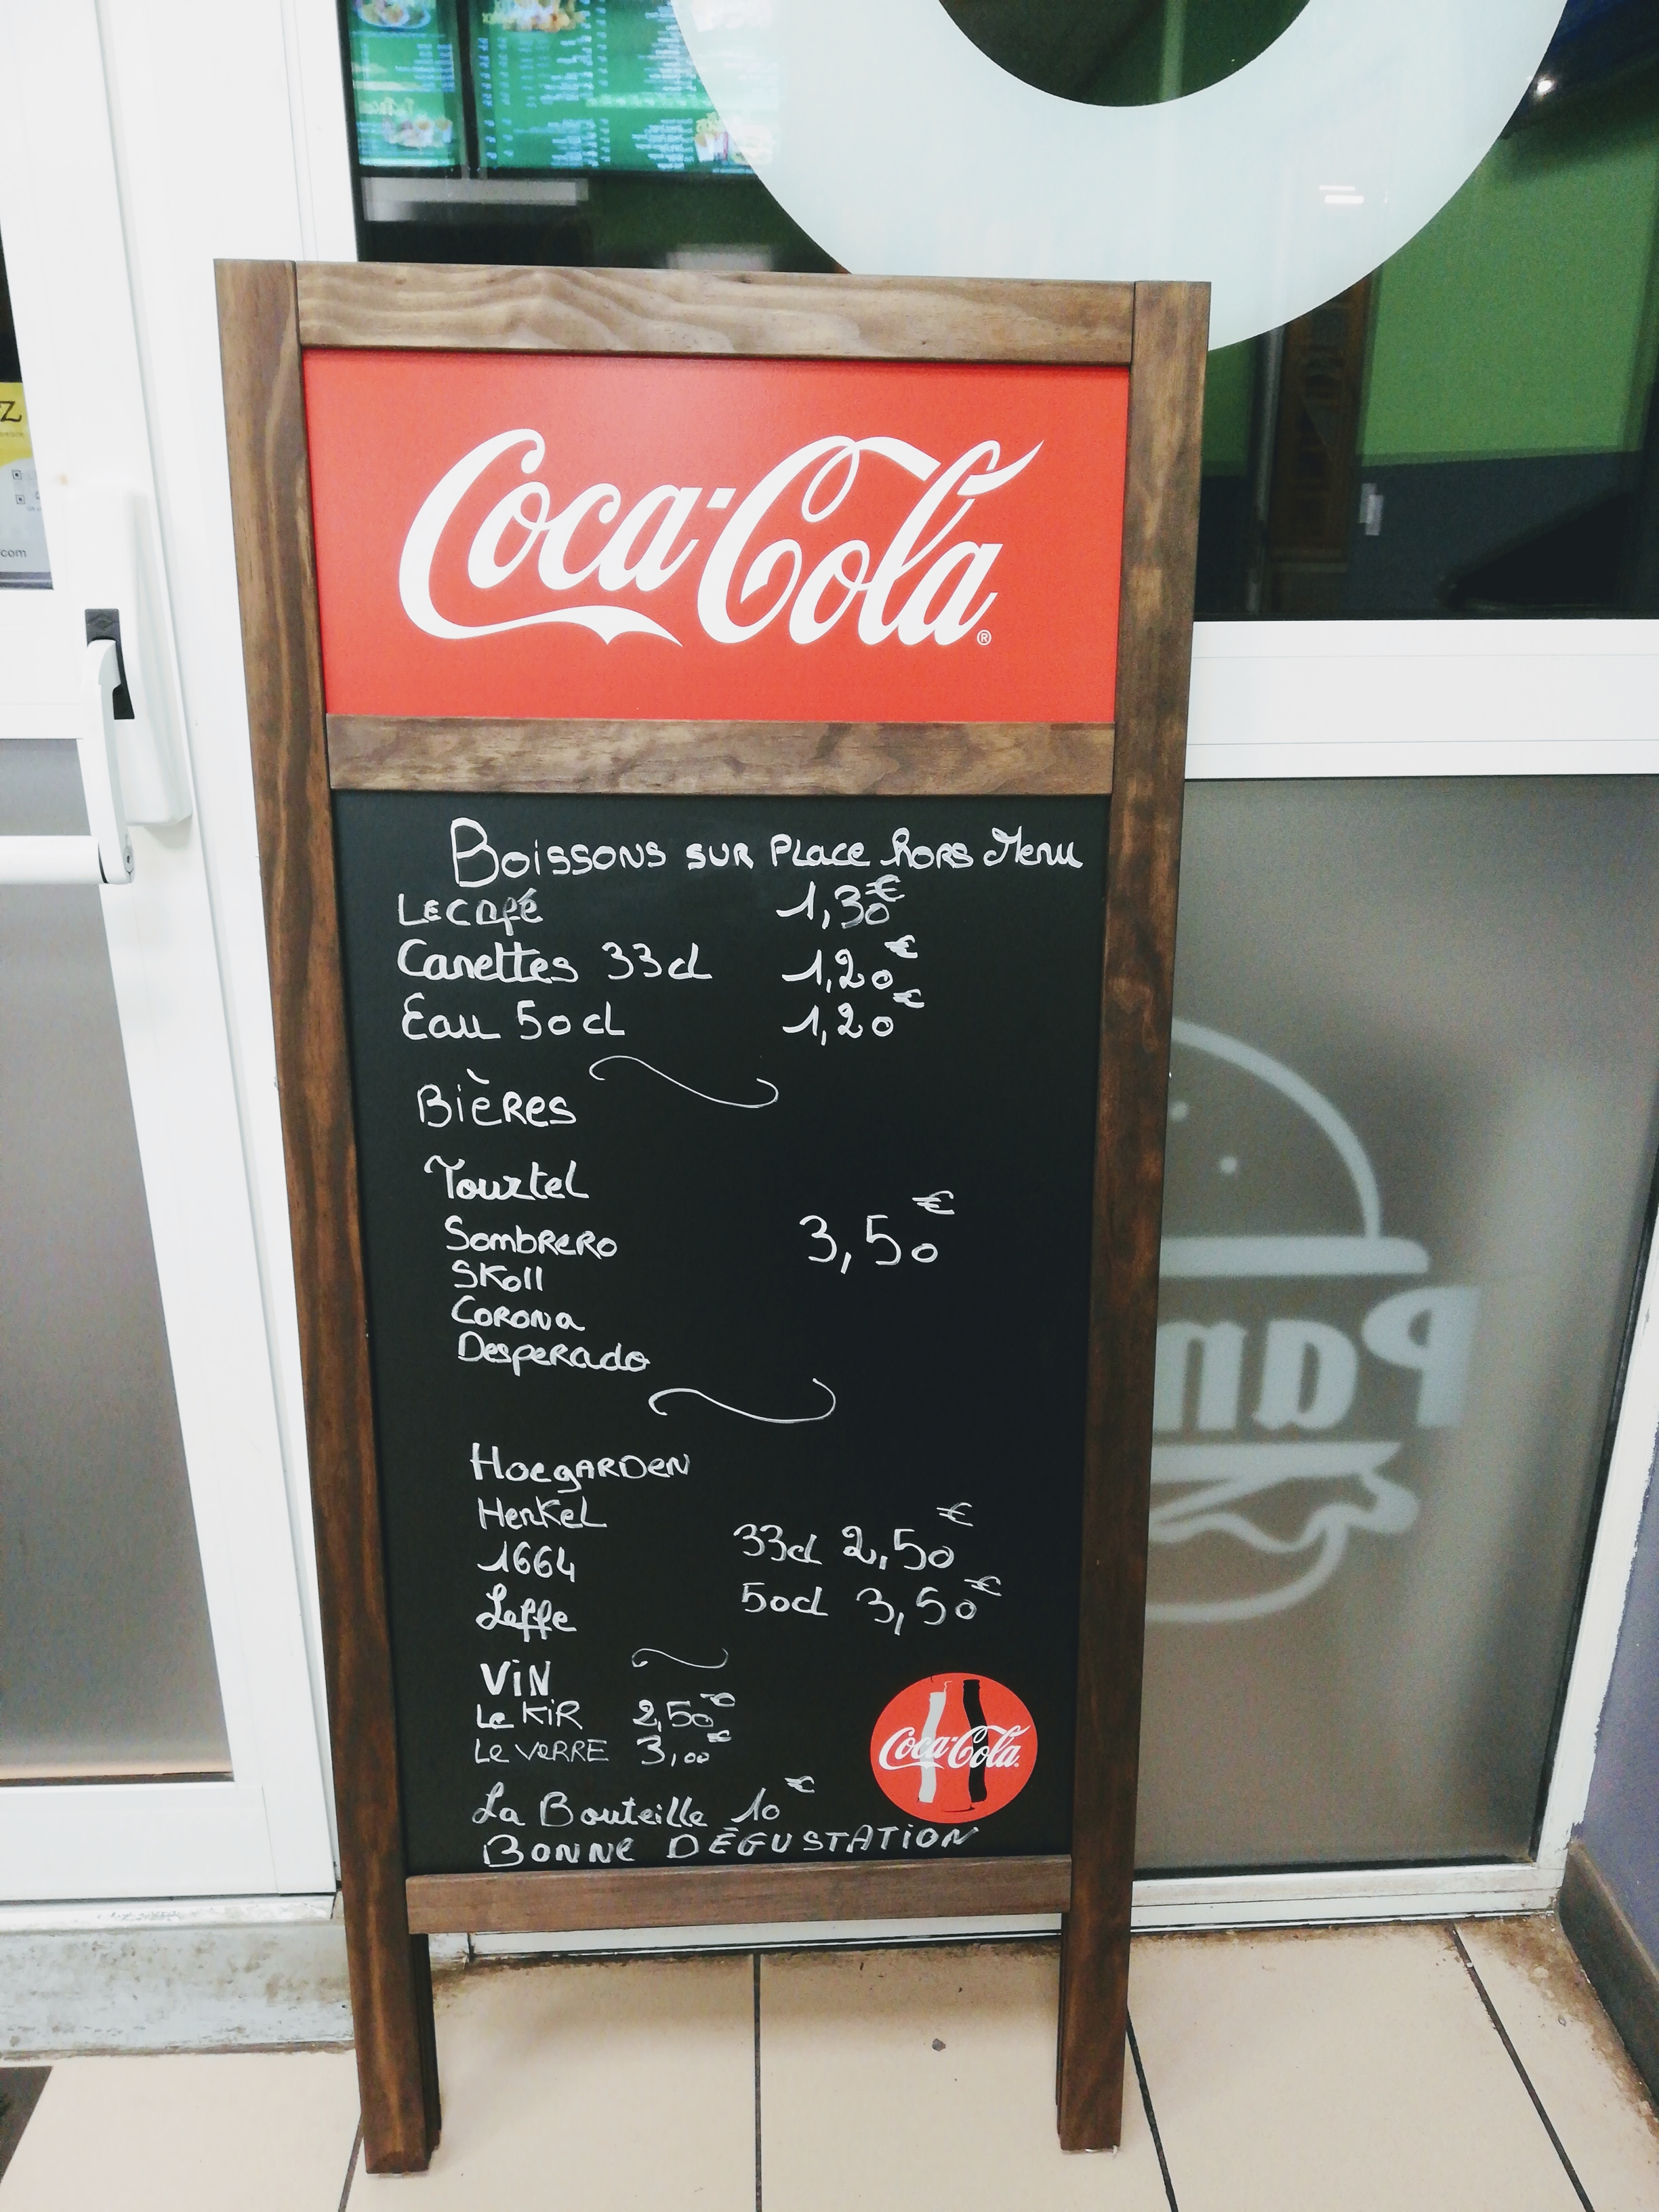 Coca-Cola®
Boissons sur Place hors Menu
Le café 1,30€
Canettes 33cl 1,20€
Eau 50cl 1,20€
Bières
Tourtel
Sombrero 3,50€
Skoll
Corona
Desperado
Hoegarden
Henkel
1664 33cl 2,50€
Leffe 50cl 3,50€
ViN
Le KiR 2,50€
Le VeRRE 3,00€
La Bouteille 10€
BONNe DÉGUSTATiON
Coca-Cola
Pan
Z
com